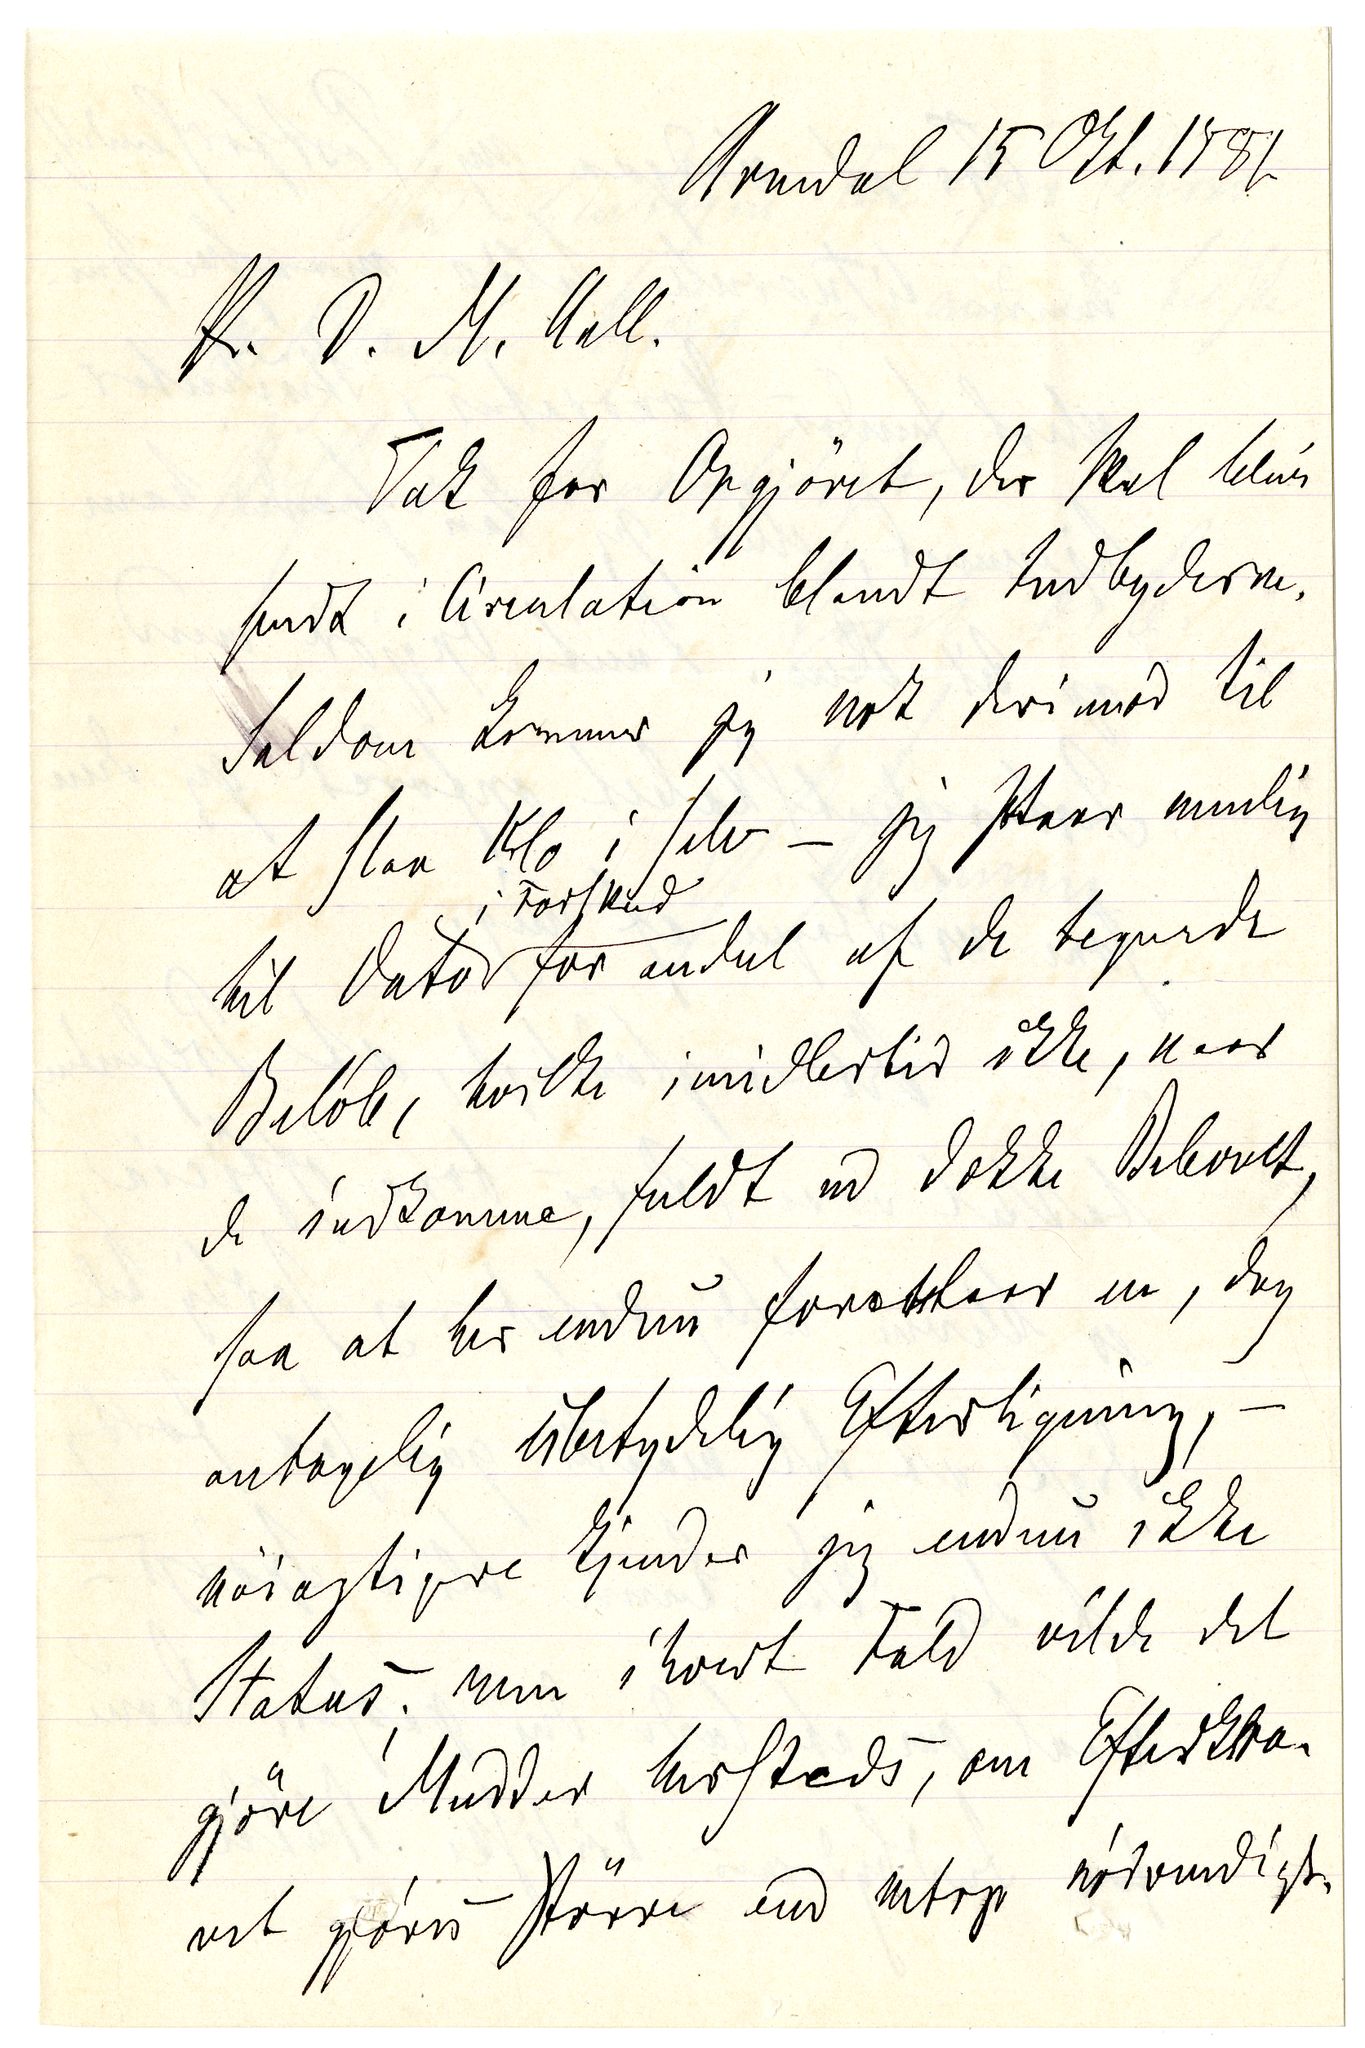 Arendal 15 Okt. 1881
Hr. D. M. Aall.
Tak for Opgjöret, der skal blive
sendt i Circulation blandt Indbyderne.
Saldoen kommer jeg nok derimod til
at slaa Klo i selv – jeg staar nemlig
i Forskud
til Dato for endel af de tegnede
Belöb, hvilke imidlertid ikke, naar
de indkomme, fuldt ud dække Behovet,
saa at her endnu forestaar en, dog
antagelig ubetydelig Efterligning, –
nöiagtigere kjender jeg endnu ikke
Status; men i hvert Fald vilde det
gjöre Mudder hersteds, om Efterkra-
vet gjöres större end netop nödvendigt.